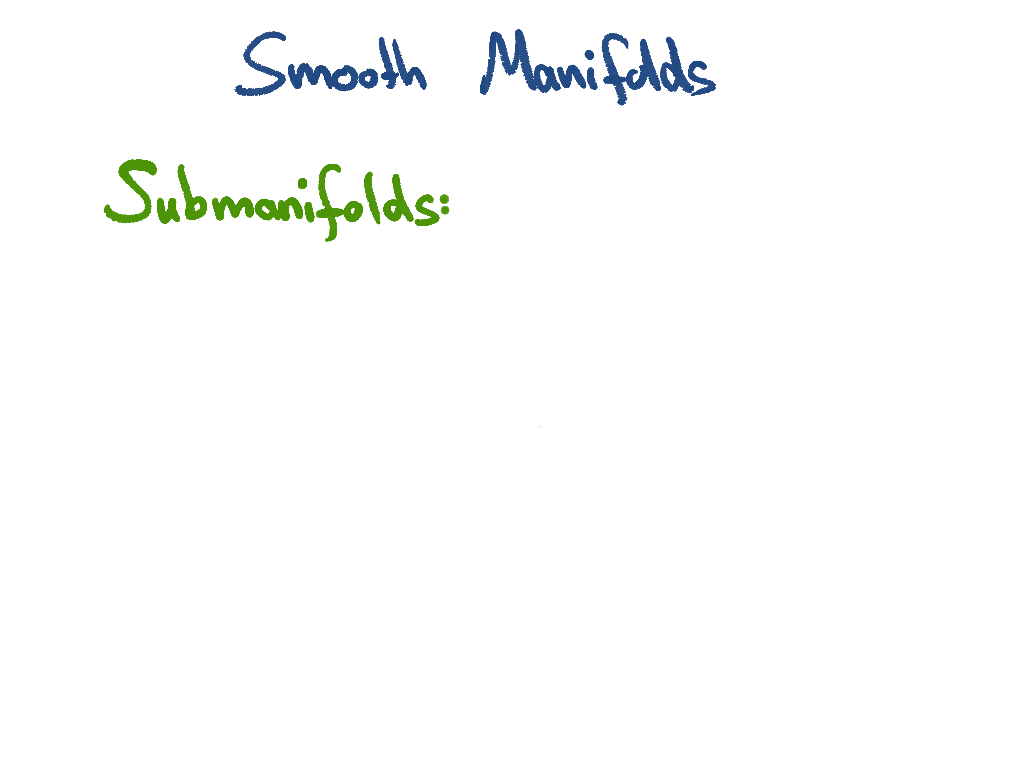 Smooth Manifolds
Submanifolds: